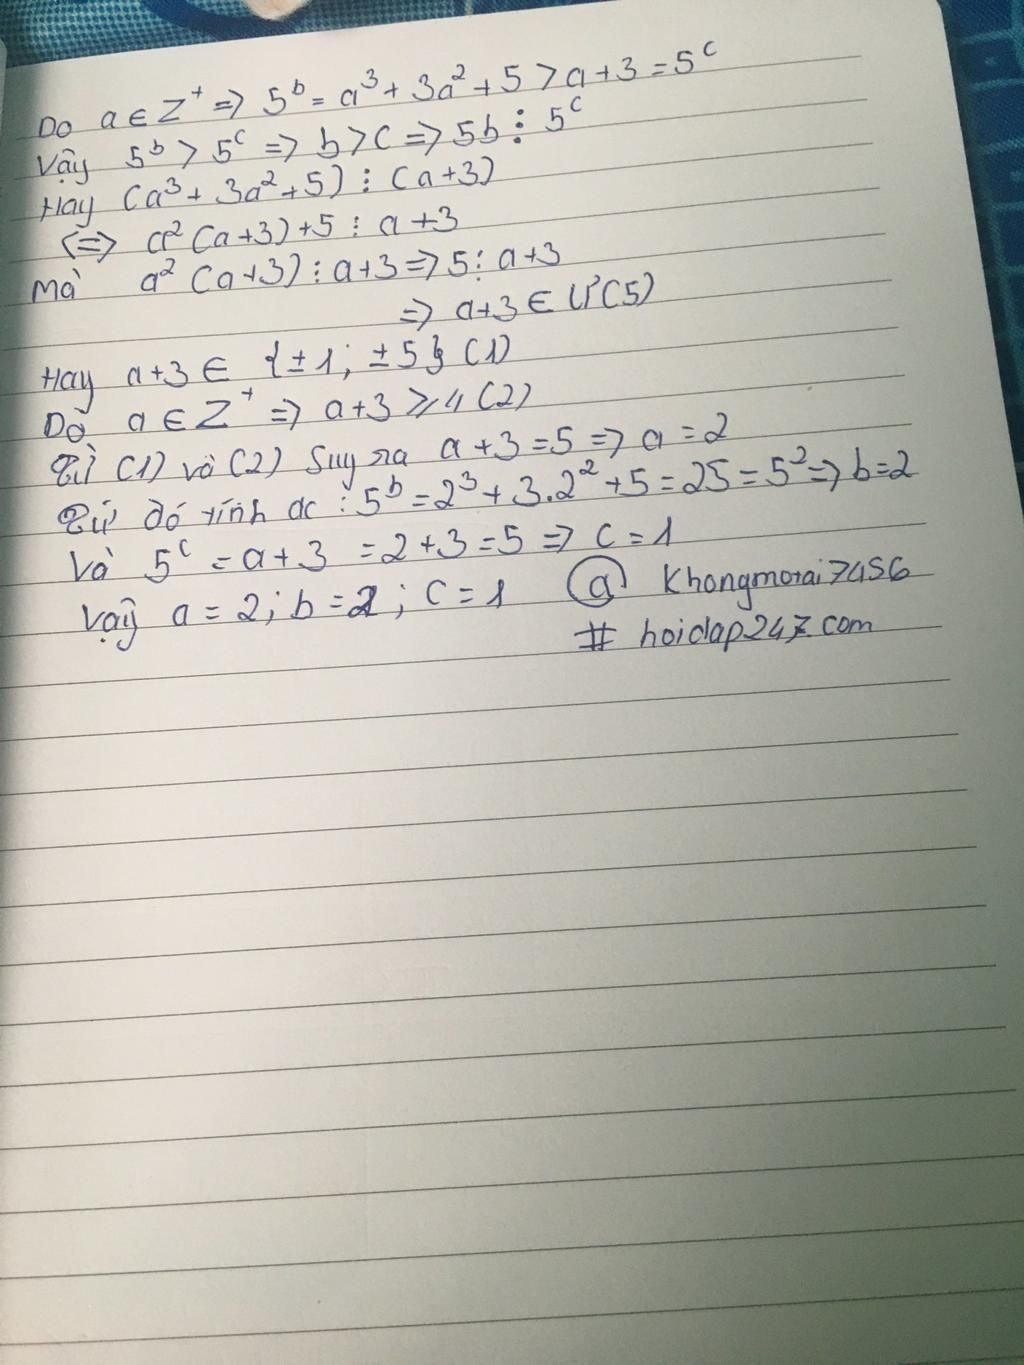 Do a ∈ Z⁺ => 5ᵇ = a³ + 3a² + 5 > a + 3 = 5ᶜ
Vậy 5ᵇ > 5ᶜ => b > c => 5b ⋮ 5ᶜ
Hay (a³ + 3a² + 5) ⋮ (a+3)
(=> a² (a+3) + 5 ⋮ a + 3
Mà a² (a+3) ⋮ a+3 => 5 ⋮ a+3
=> a+3 ∈ Ư(5)
Hay a+3 ∈ {±1; ±5} (1)
Dò a ∈ Z⁺ => a+3 ≥ 4 (2)
Từ (1) và (2) Suy ra a + 3 = 5 => a = 2
Từ đó tính đc : 5ᵇ = 2³ + 3.2² + 5 = 25 = 5² => b = 2
Và 5ᶜ = a + 3 = 2 + 3 = 5 => c = 1
Vậy a = 2; b = 2; c = 1 @ Khongmorai7456
# hoidap247.com